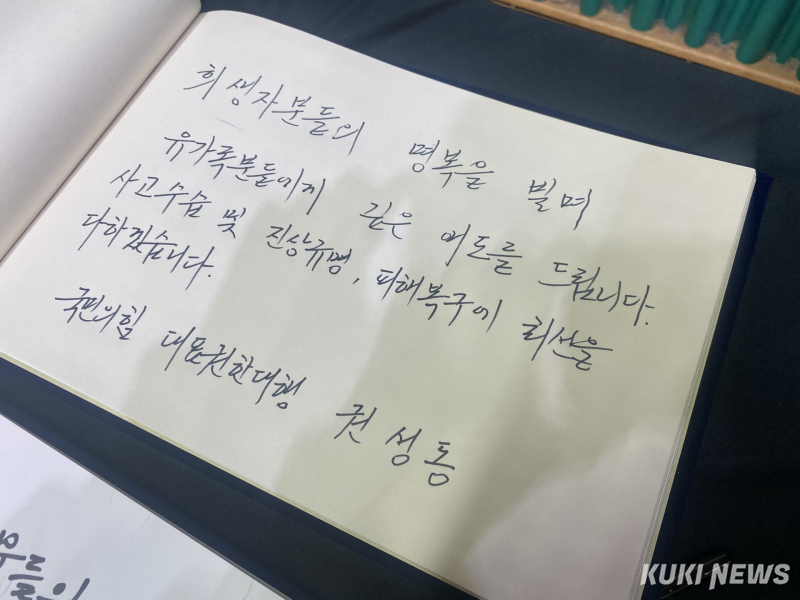 희생자분들의 명복을 빌며
유가족분들에게 깊은 애도를 드립니다.
사고수습 및 진상규명, 피해복구에 최선을
다하겠습니다.
국민의힘 대표권한대행 권성동
우들의
KUKI NEWS